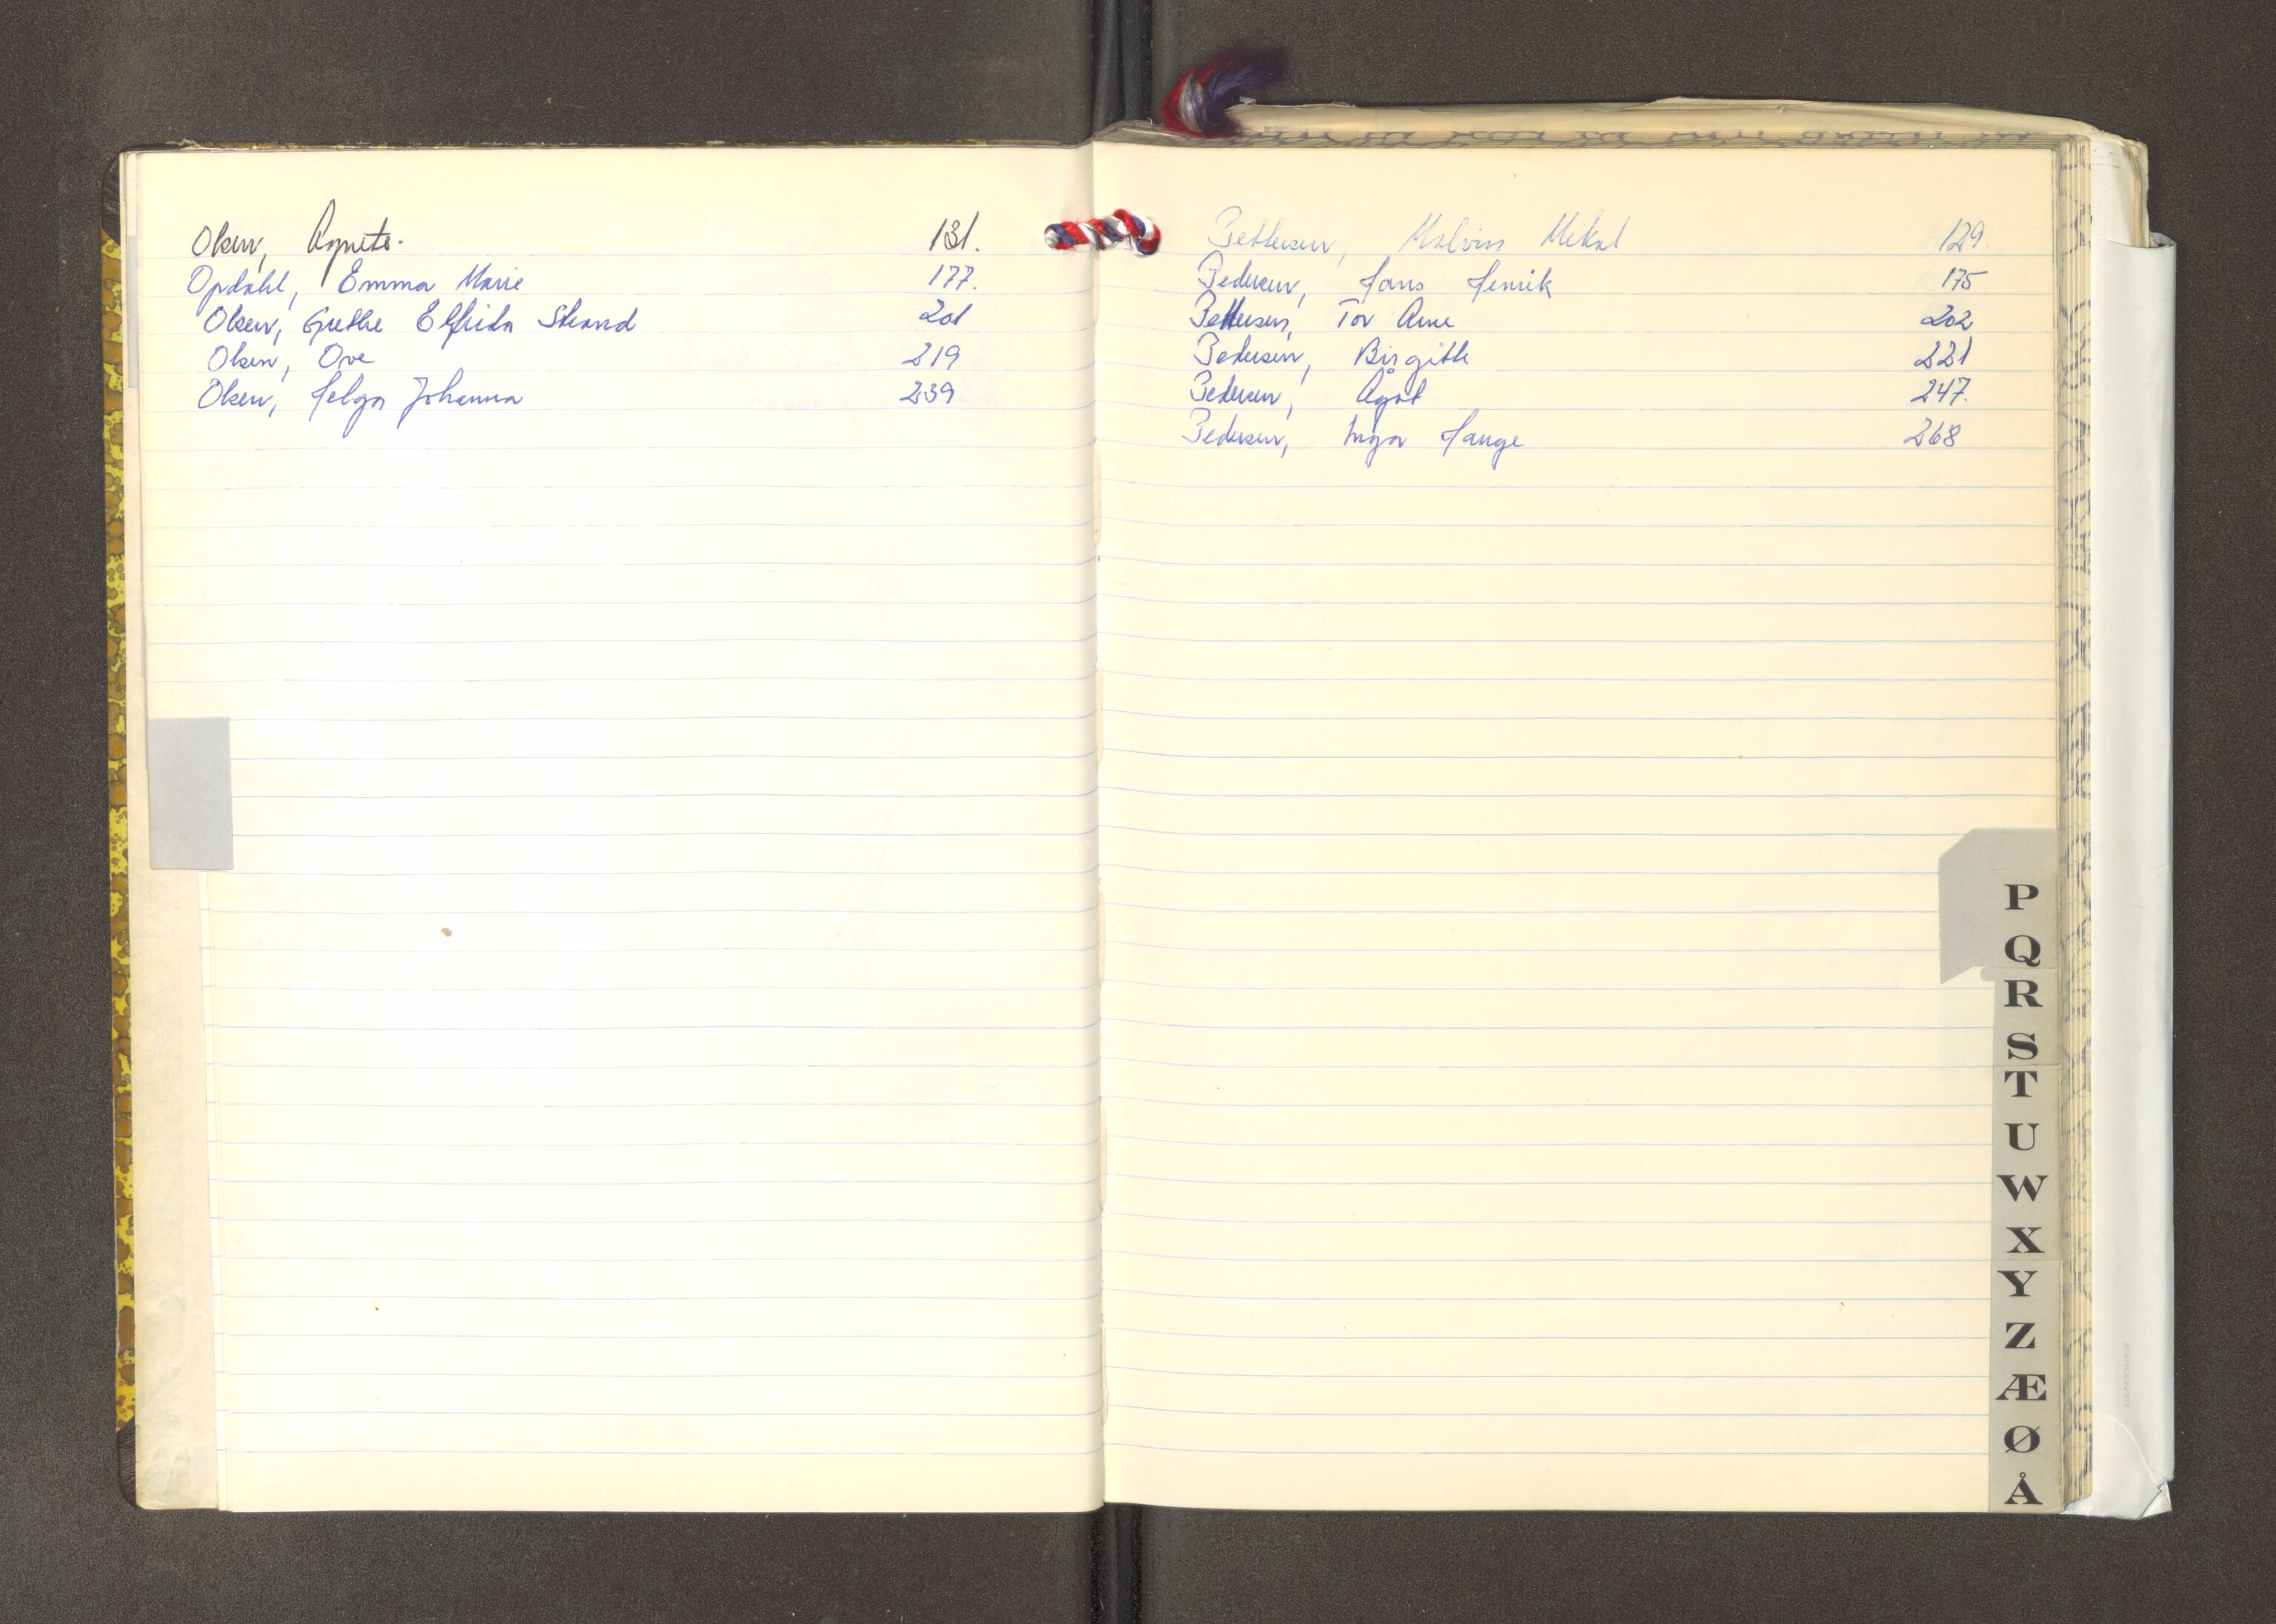 Olsen, Agnete. 131.
Opdahl, Emma Marie 177.
Olsen, Grethe Elfrida Strand 201
Olsen, Ove 219
Olsen, Helga Johanna 239
Pettersen, Malvin Mikal 129.
Pedersen, Hans Henrik 175
Pettersen, Tor Arne 202
Pedersen, Birgitte 221
Pedersen, Ågot 247.
Pedersen, Inga Hauge 268
P
Q
R
S
T
U
W
X
Y
Z
Æ
Ø
Å